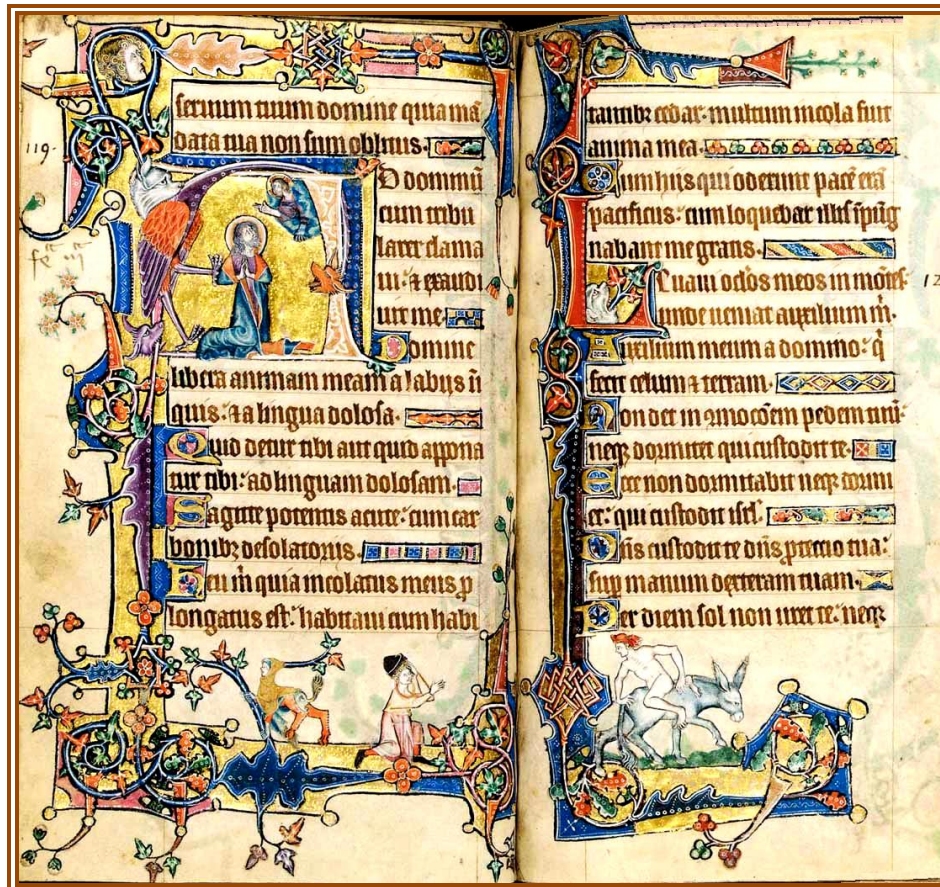 119.
seruum tuum domine quia mā
data tua non sum oblitus.
AD dominū
cum tribu
larer clama
ui: & exaudi
uit me
Domine
libera animam meam a labijs in
quis: & a lingua dolosa.
Quid detur tibi aut quid appona
tur tibi: ad linguam dolosam.
Sagitte potentis acute: cum car
bonibꝫ desolatoriis.
Heu m̄ quia incolatus meus ꝓ
longatus est: habitaui cum habi
tantibꝫ cedar: multum incola fuit
anima mea.
Cum hiis qui oderunt pacē erā
pacificus: cum loquebar illis īpug
nabant me gratis.
12
Leuaui oclōs meos in mōtes
unde ueniat auxilium m̄.
Auxilium meum a domino: q̄
fecit celum & terram.
Non det in ꝯmocōem pedem tuū:
neqꝫ dormitet qui custodit te.
Ecce non dormitabit neqꝫ dormi
et: qui custodit isrl̄.
Dn̄s custodit te dn̄s ꝓtectio tua:
suꝑ manum dexteram tuam.
Per diem sol non uret te: neqꝫ